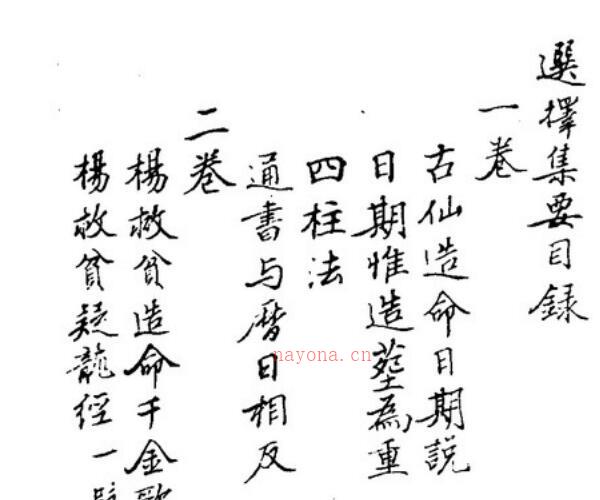 選擇集要目録
一卷
古仙造命日期説
日期惟造塟為重
四柱法
通書与曆日相反
二卷
楊救貧造命千金歌
楊救貧疑龍經一
nayona.cn